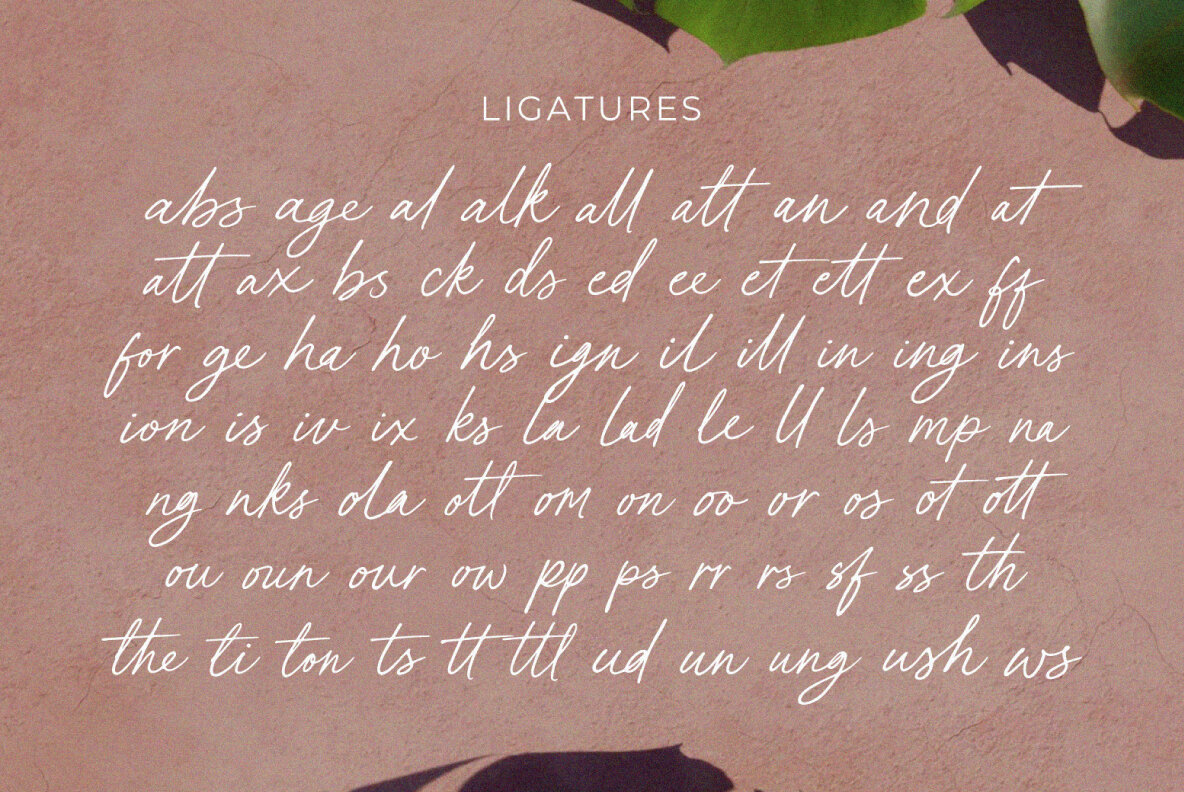 LIGATURES
abs age al alk all att an and at
att ax bs ck ds ed ee et ett ex ff
for ge ha ho hs ign il ill in ing ins
ion is iv ix ks la lad le ll ls mp na
ng nks ola otl om on oo or os ot ott
ou oun our ow pp ps rr rs sf ss th
the ti ton ts tt ttl ud un ung ush ws